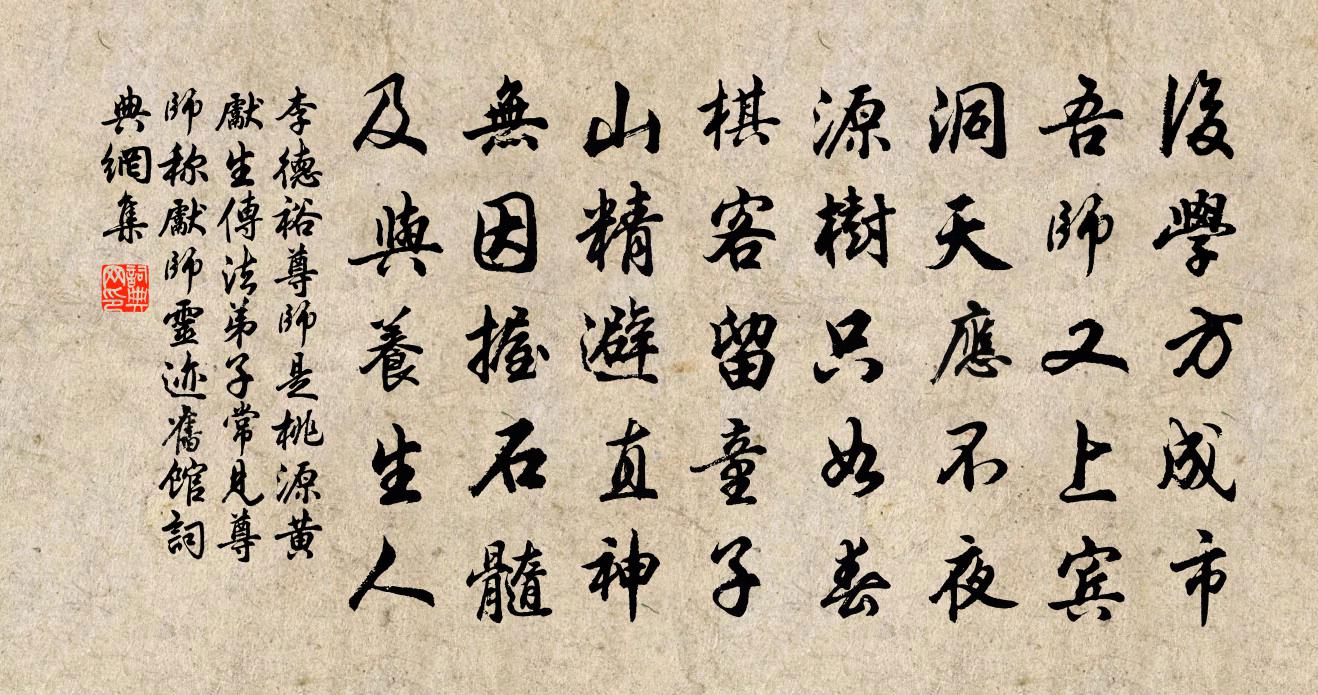 後學方成市
吾師又上宾
洞天應不夜
源樹只如春
棋客留童子
山精避直神
無因握石髓
及與養生人
李德裕尊師是桃源黄
獻生傳法弟子常見尊
師称獻師靈迹舊館詞
典網集
詞典
网印